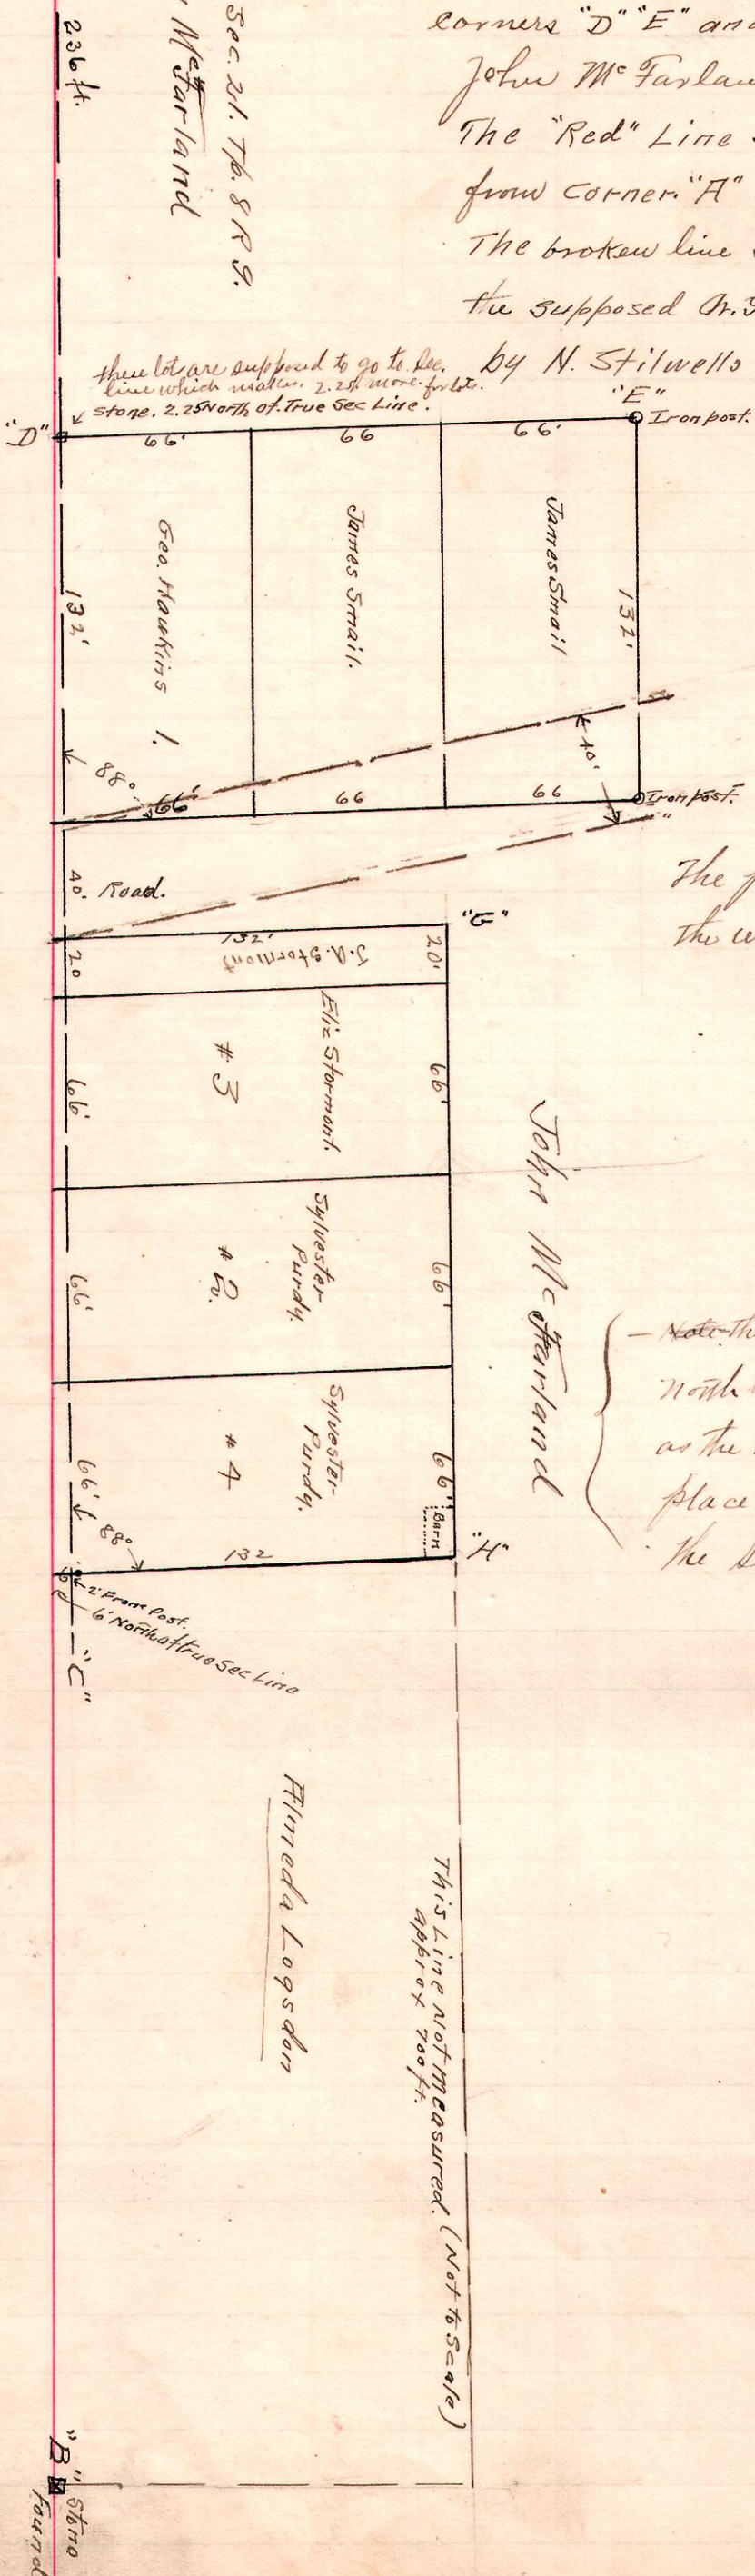 236 ft.
Sec. 21. Tp. 8 R 9.
McFarland
Corners "D" "E" and
John McFarlan
The "Red" Line
from Corner. "A"
The broken line
the supposed
by N. Stilwells
these lots are supposed to go to Sec.
line which makes 2.25 more for lots.
Stone. 2.25 North of True Sec Line.
"D"
"E"
Iron post.
66'
66
66'
Geo. Hawkins 1.
James Smail.
James Smail
132'
132'
88°
40'
66'
66
66
Iron post.
40. Road.
"G"
132'
20
J.A. Stormont
20'
Eliz Stormont.
# 3
66'
66'
Sylvester
Purdy.
# 2.
66'
66'
John McFarland
Sylvester
Purdy.
# 4
66'
66'
Barn
88°
132
"H"
2' From Post.
6' North of true Sec Line
"C"
The
the
— Note th
north
as the
place
the
Almeda Logsdon
This Line Not measured. (Not to Scale)
approx 700 ft.
"B" Stone
Found